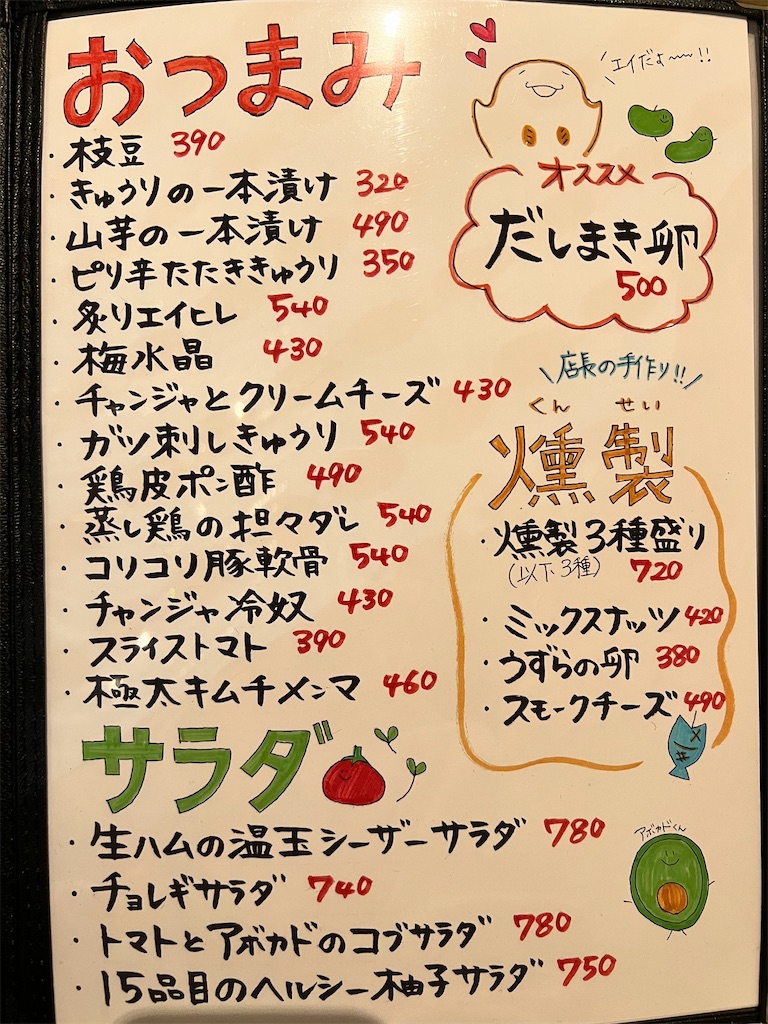 おつまみ
・枝豆 390
・きゅうりの一本漬け 320
・山芋の一本漬け 490
・ピリ辛たたききゅうり 350
・炙りエイヒレ 540
・梅水晶 430
・チャンジャとクリームチーズ 430
・ガツ刺しきゅうり 540
・鶏皮ポン酢 490
・蒸し鶏の担々ダレ 540
・コリコリ豚軟骨 540
・チャンジャ冷奴 430
・スライストマト 390
・極太キムチメンマ 460
エイだよ〜〜!!
オススメ
だしまき卵
500
\店長の手作り!!/
くんせい
燻製
・燻製3種盛り
(以下3種) 720
・ミックスナッツ 420
・うずらの卵 380
・スモークチーズ 490
サラダ
・生ハムの温玉シーザーサラダ 780
・チョレギサラダ 740
・トマトとアボカドのコブサラダ 780
・15品目のヘルシー柚子サラダ 750
アボカドくん